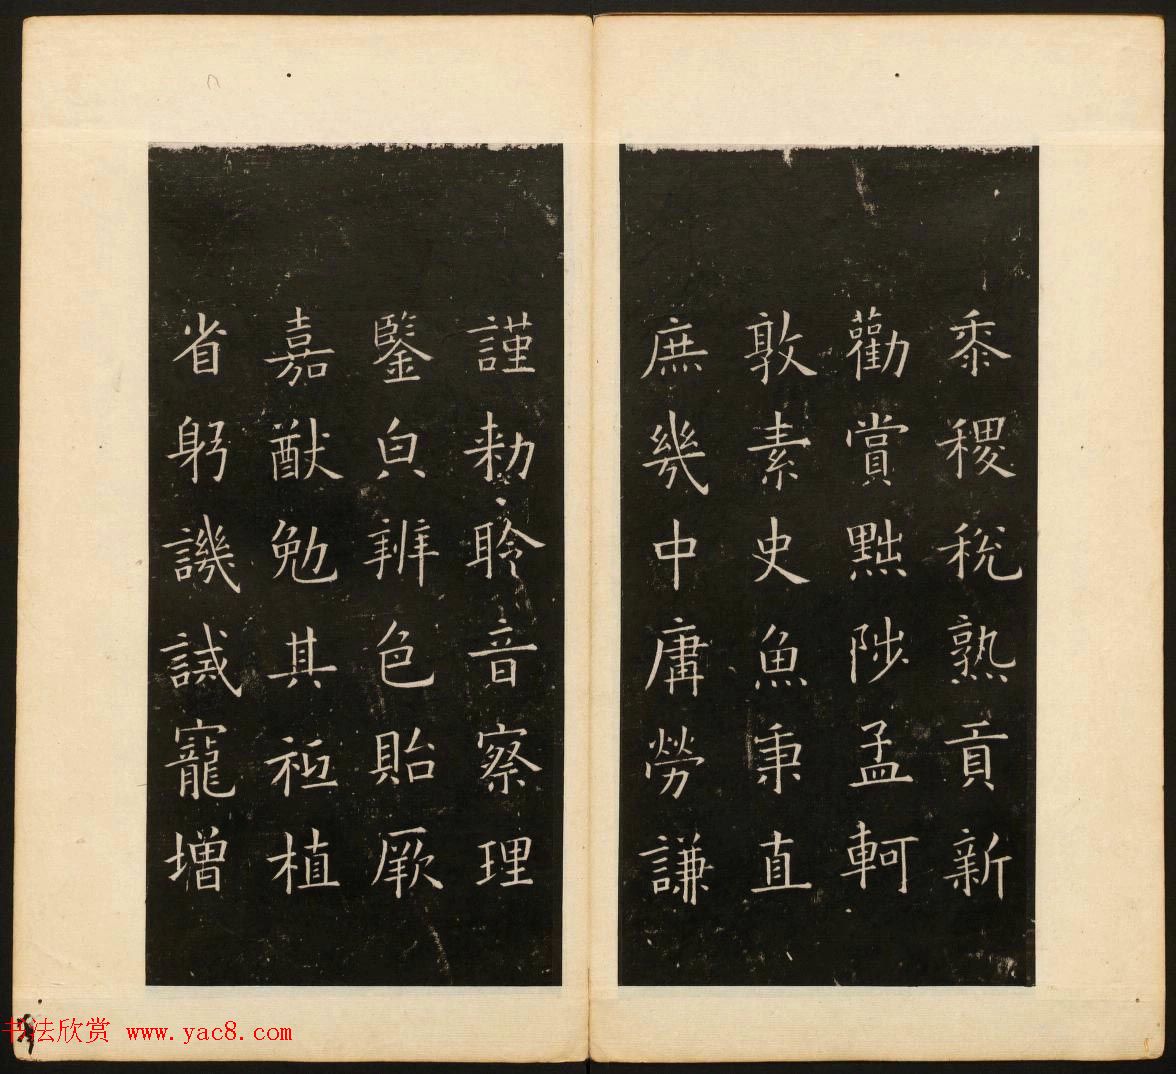 黍稷稅熟貢新
勸賞黜陟孟軻
敦素史魚秉直
庶幾中庸勞謙
謹勅聆音察理
鑒皃辨色貽厥
嘉猷勉其祗植
省躬譏誡寵增
书法欣赏 www.yac8.com